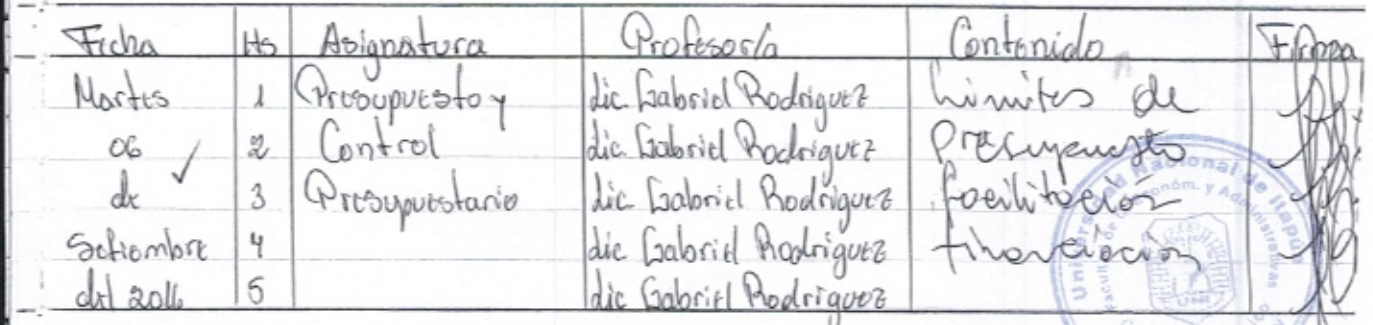 Fecha Hs Asignatura Profesor/a Contenido Firma
Martes 1 Presupuesto y Lic. Gabriel Rodriguez Limites de
06 2 Control Lic. Gabriel Rodriguez Presupuesto
de 3 Presupuestario Lic. Gabriel Rodriguez facilitación
Setiembre 4 Lic. Gabriel Rodriguez financiación
del 2016 5 Lic. Gabriel Rodriguez
Universidad Nacional de Itapúa